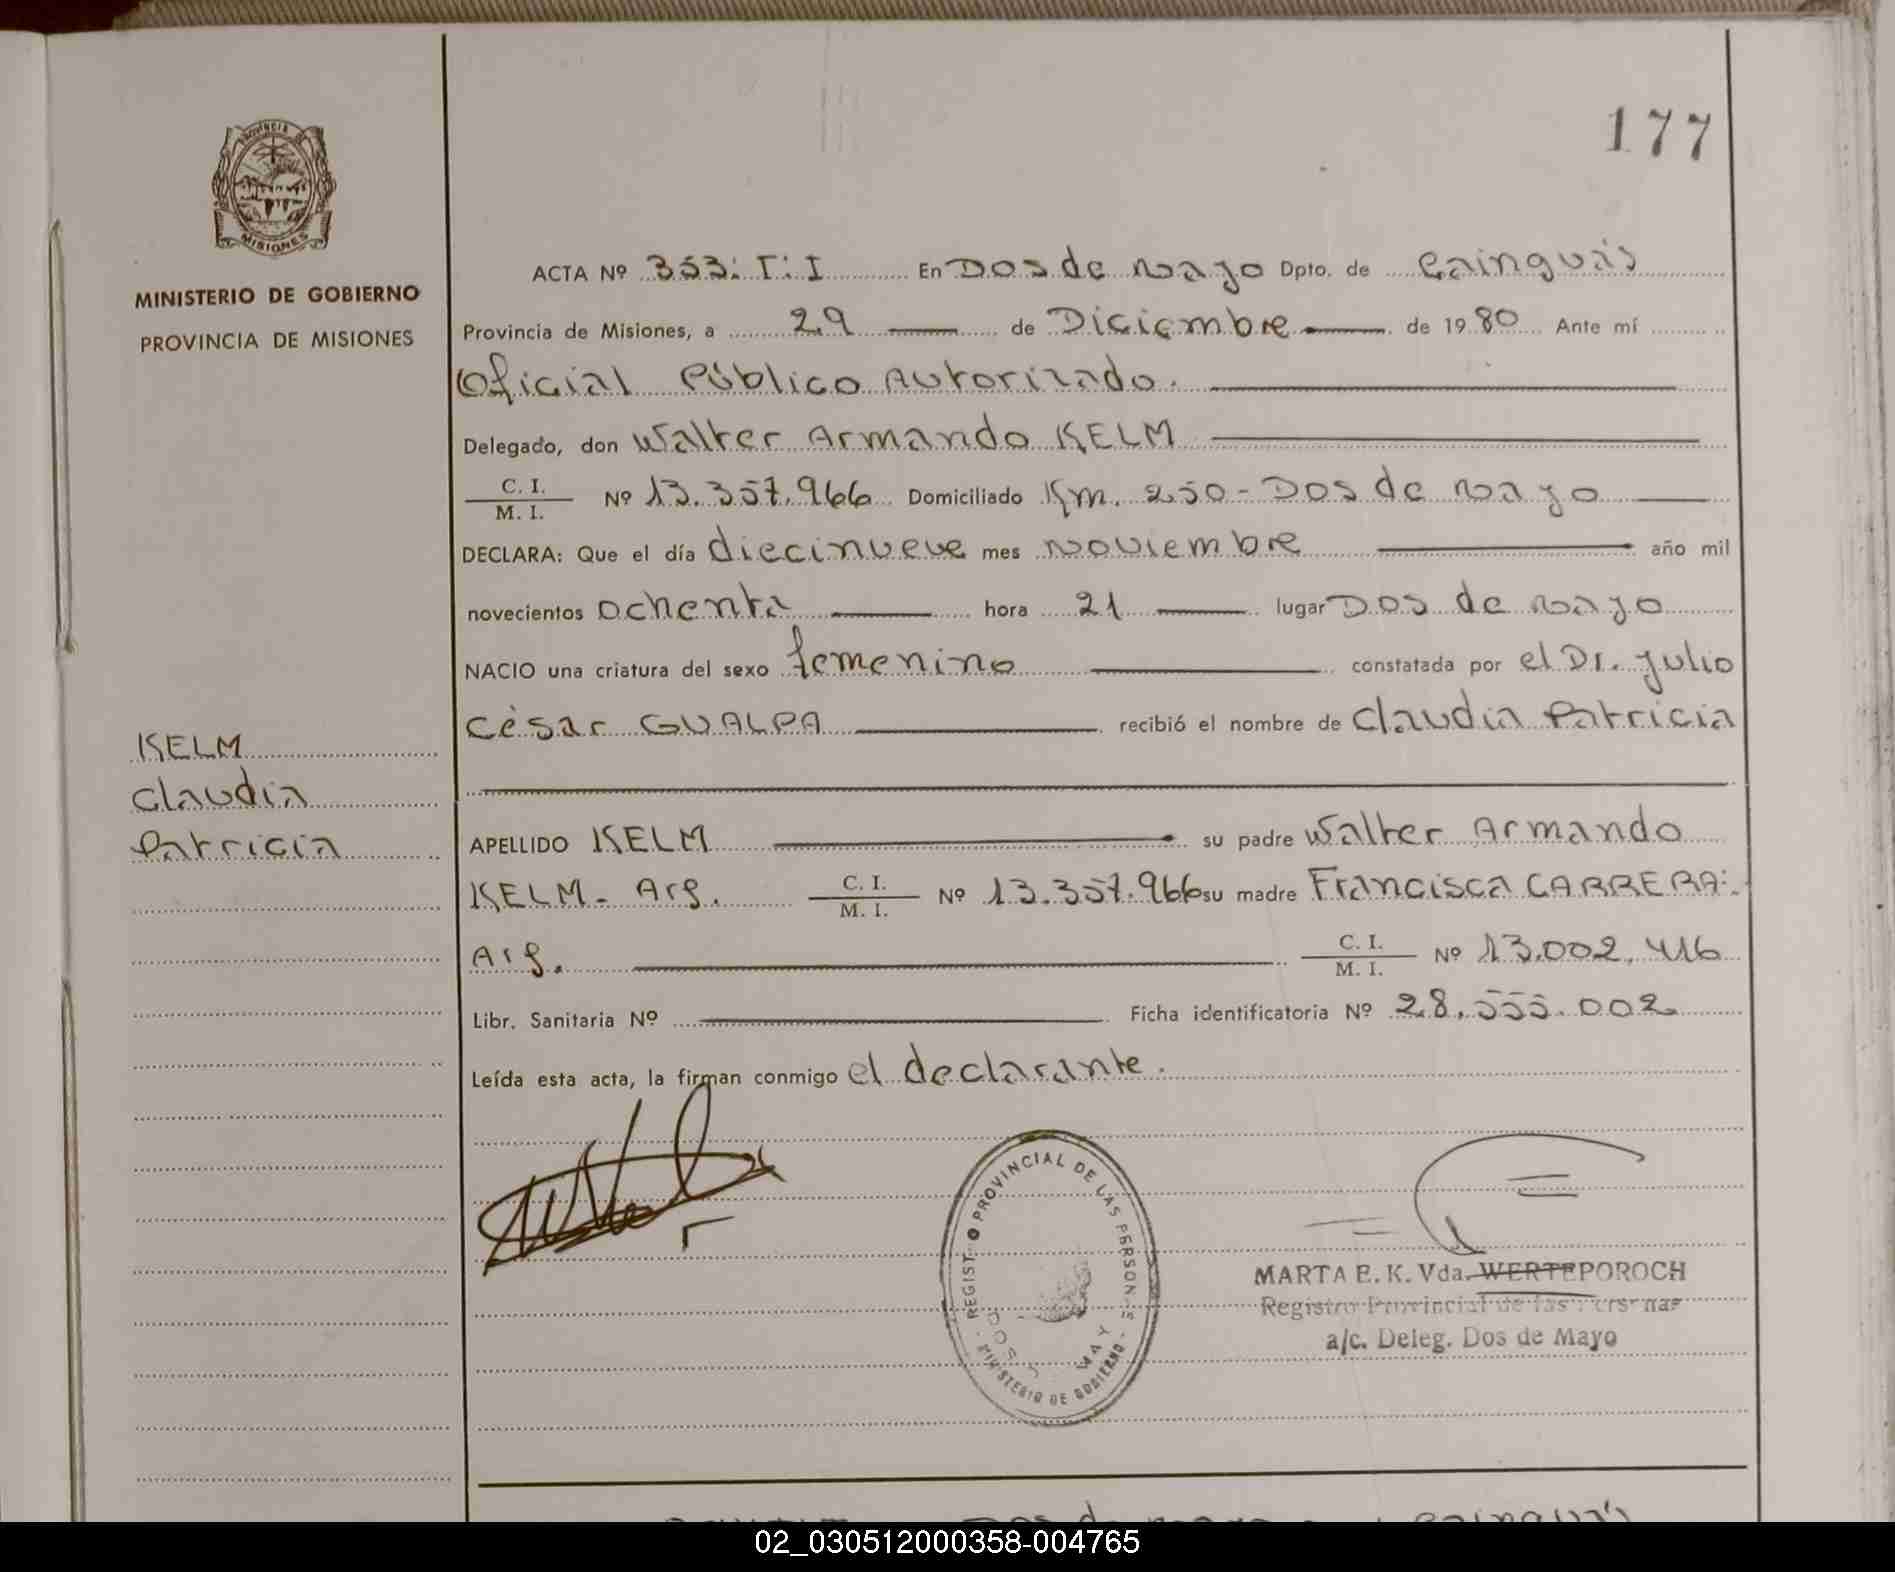 177
PROVINCIA DE
MISIONES
MINISTERIO DE GOBIERNO
PROVINCIA DE MISIONES
ACTA Nº 353: T: I En Dos de Mayo Dpto. de Cainguás
Provincia de Misiones, a 29 de Diciembre de 1980 Ante mí
Oficial Público Autorizado.
Delegado, don Walter Armando KELM
C. I.
M. I. Nº 13.357.966 Domiciliado Km. 250 - Dos de Mayo
DECLARA: Que el día diecinueve mes Noviembre año mil
novecientos ochenta hora 21 lugar Dos de Mayo
NACIO una criatura del sexo femenino constatada por el Dr. Julio
César GUALPA recibió el nombre de Claudia Patricia
KELM
Claudia
Patricia
APELLIDO KELM su padre Walter Armando
KELM - Arg. C. I.
M. I. Nº 13.357.966 su madre Francisca CARRERA:
Arg. C. I.
M. I. Nº 13.002.416
Libr. Sanitaria Nº Ficha identificatoria Nº 28.555.002
Leída esta acta, la firman conmigo el declarante.
REGISTRO PROVINCIAL DE LAS PERSONAS
MINISTERIO DE GOBIERNO
MARTA E. K. Vda. WERTEPOROCH
Registro Provincial de las Personas
a/c. Deleg. Dos de Mayo
02_030512000358-004765